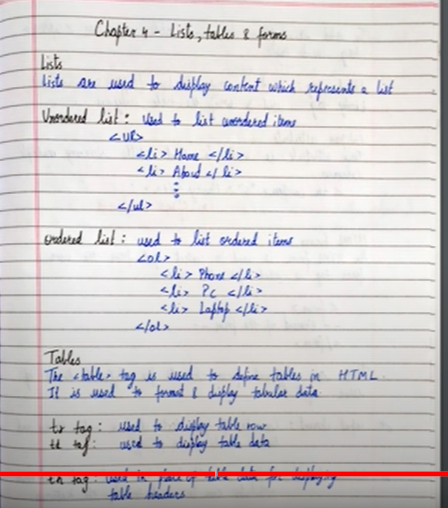 Chapter 4 - Lists, tables & forms
Lists
Lists are used to display content which represents a list
Unordered list : used to list unordered items
<ul>
<li> Home </li>
<li> About </li>
</ul>
ordered list : used to list ordered items
<ol>
<li> Phone </li>
<li> Pc </li>
<li> Laptop </li>
</ol>
Tables
The <table> tag is used to define tables in HTML
It is used to format & display tabular data
tr tag : used to display table row
td tag : used to display table data
th tag : used in place of table data for displaying
table headers